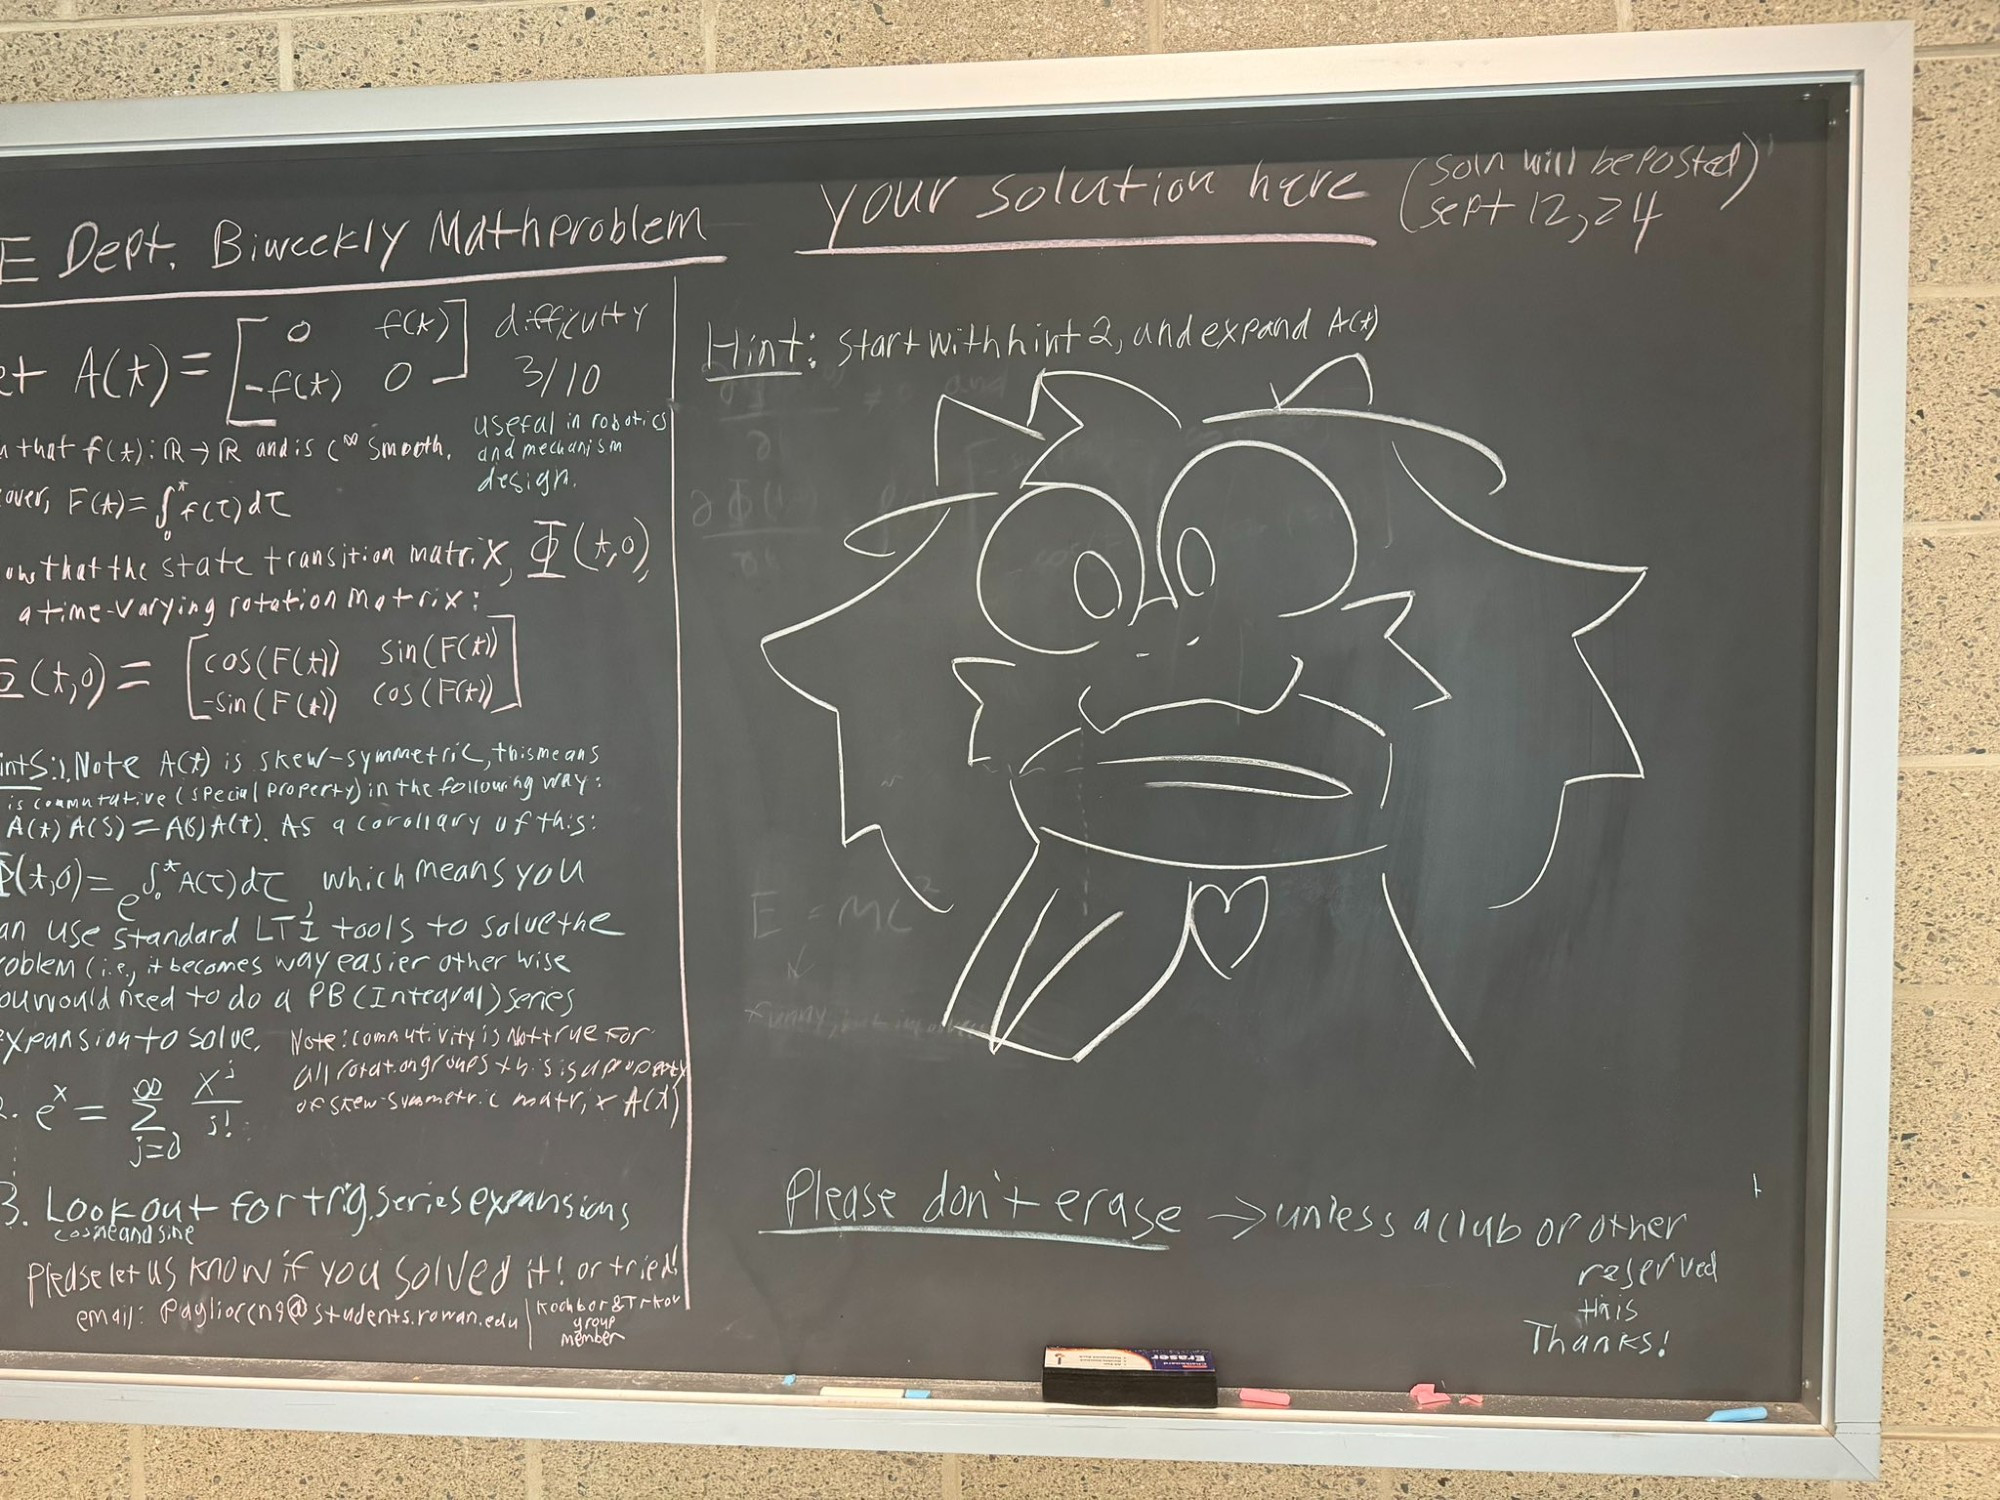 E Dept. Biweekly Math problem
et A(t) = [ 0 f(t)
-f(t) 0 ]
difficulty
3/10
useful in robotics
and mechanism
design.
that f(t): ℝ → ℝ and is C∞ smooth.
over, F(t) = ∫₀ᵗ f(τ)dτ
ow that the state transition matrix, Φ(t,0),
a time-varying rotation matrix:
Φ(t,0) = [ cos(F(t)) sin(F(t))
-sin(F(t)) cos(F(t)) ]
ints: 1. Note A(t) is skew-symmetric, this means
is commutative (special property) in the following way:
A(t)A(s) = A(s)A(t). As a corollary of this:
Φ(t,0) = e^∫₀ᵗ A(τ)dτ, which means you
an use standard LTI tools to solve the
roblem (i.e., it becomes way easier other wise
ou would need to do a PB (Integral) series
expansion to solve.
Note: commutivity is Not true For
all rotation groups this is a property
of skew-symmetric matrix A(t)
2. eˣ = ∞ Σ j=0 xʲ/j!
3. Look out for trig. series expansions
cosine and sine
Please let us know if you solved it! or tried!
email: @students.rowan.edu
group
member
your solution here
(soln will be posted)
(sept 12, 24
Hint: start with hint 2, and expand A(t)
E = MC²
Please don't erase → unless a club or other
reserved
this
Thanks!
Eraser